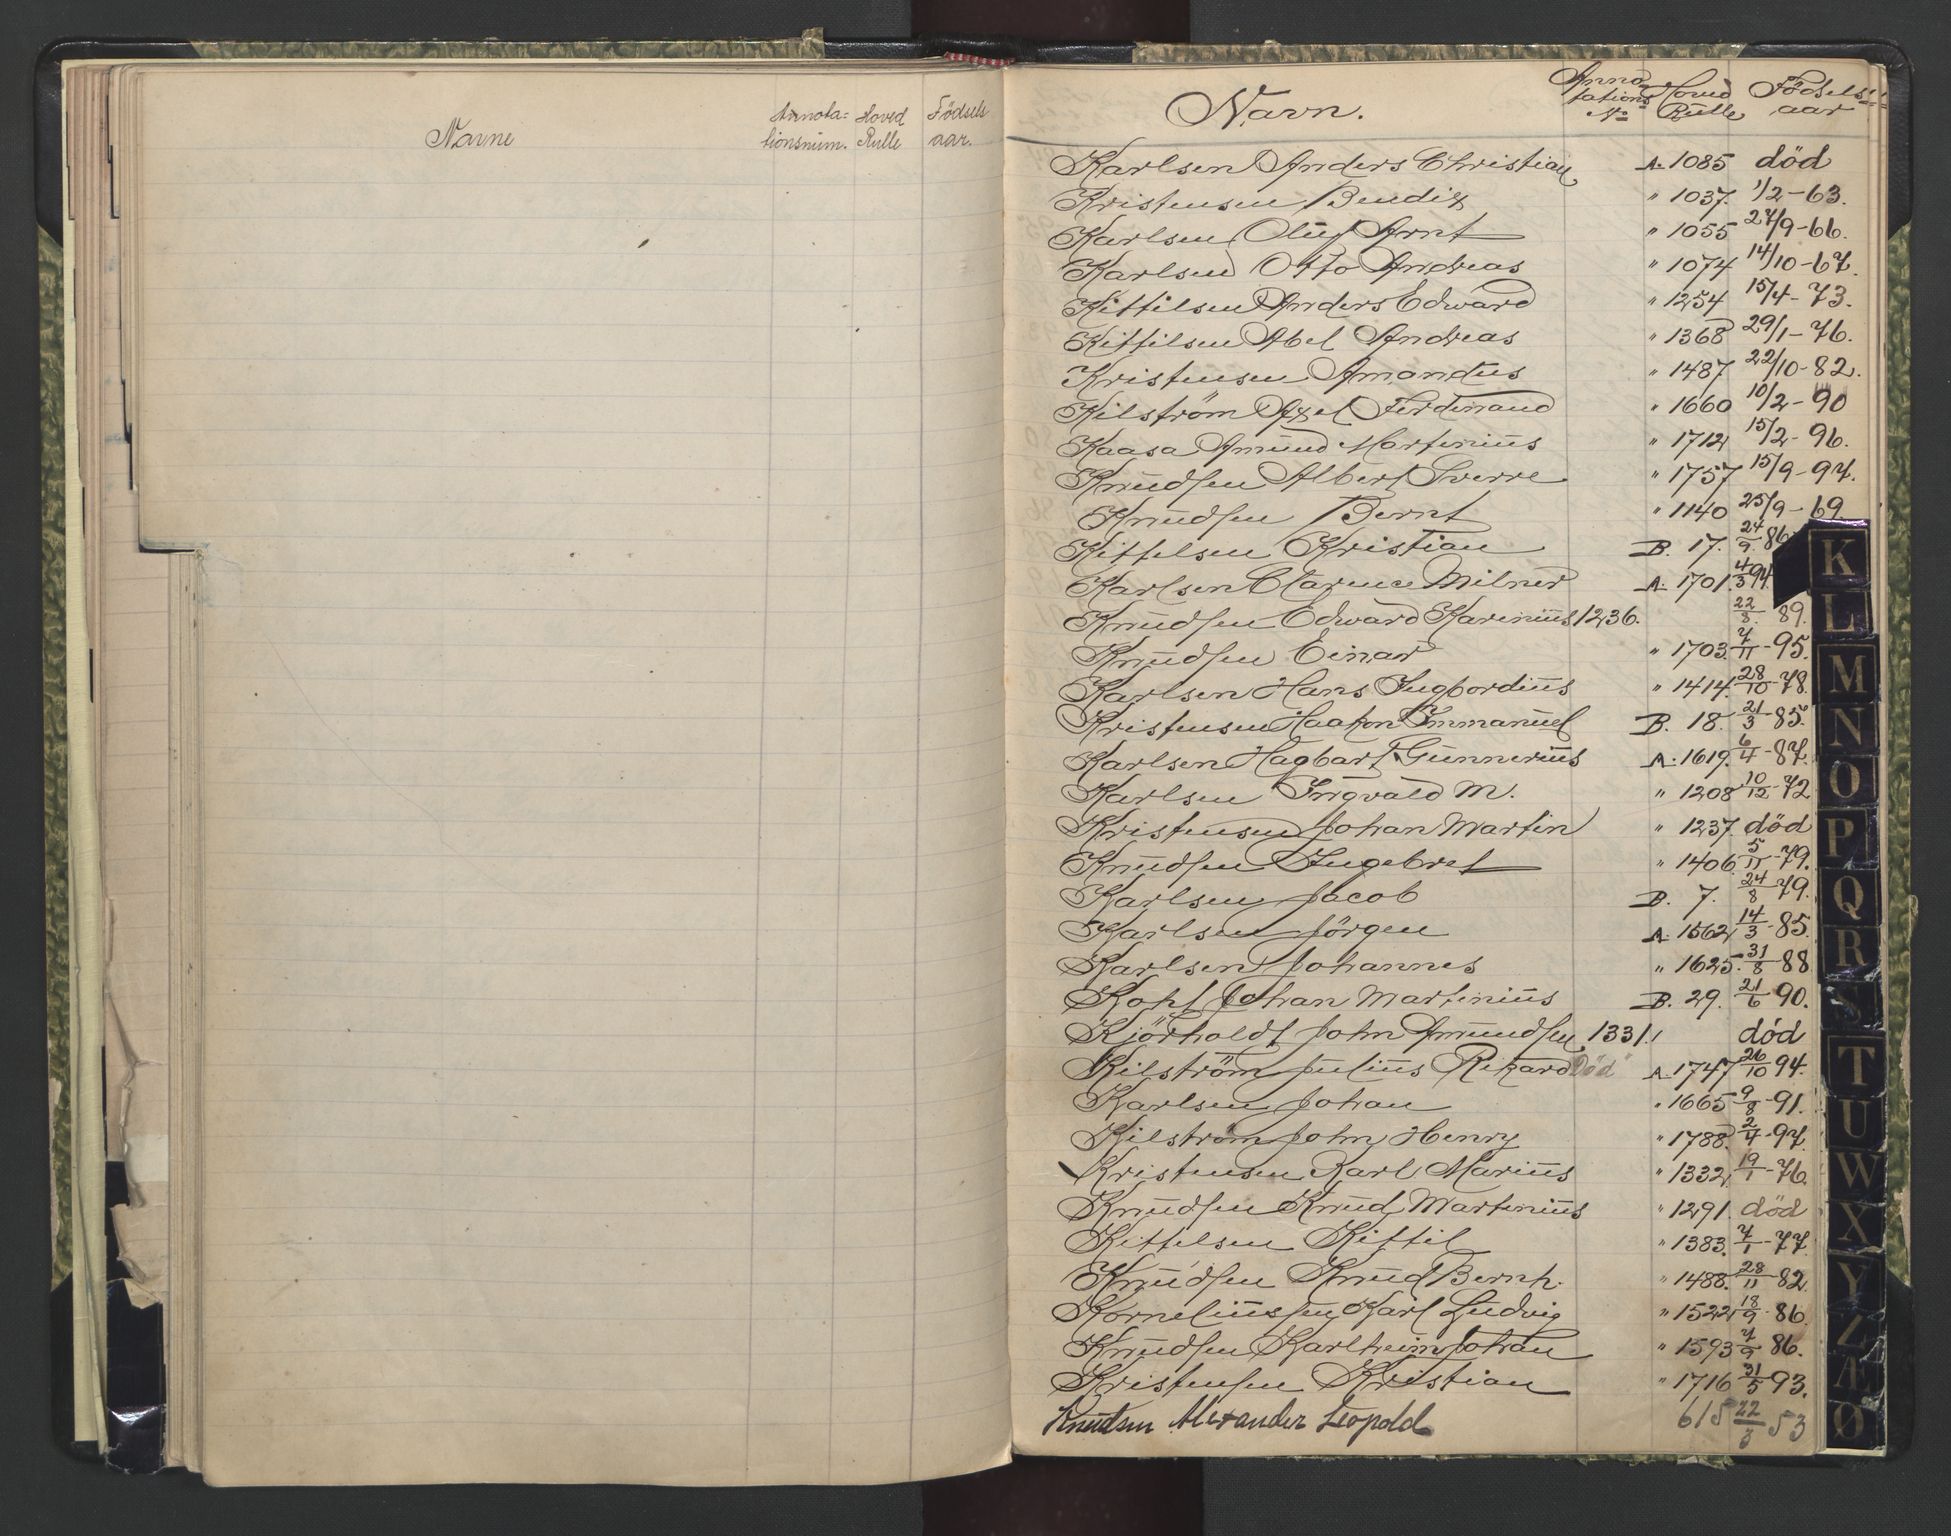 Navne Annota= Hoved Födsels
tionsnum. Rulle aar.
Navn. Anno Hoved Födsels
tations Rulle aar
No
Karlsen Anders Christian A. 1085 död
Kristensen Bendix " 1037. 1/2-63.
Karlsen Oluf Arnt " 1055 27/9-66.
Karlsen Otto Andreas " 1074 14/10-67.
Kittilsen Anders Edward " 1254 15/4-73.
Kittilsen Abel Andreas " 1368 29/1-76.
Kristensen Amandus " 1487 22/10-82.
Kilström Axel Ferdinand " 1660 10/2-90
Kaasa Amund Martinius " 1712 15/2-96.
Knudsen Albert Sverre " 1757 15/9-97.
Knudsen Bernt " 1140 25/9-69.
Kittelsen Kristian B. 17. 24/9 86
Karlsen Clarence Milner A. 1701. 4/3 94.
Knudsen Edward Karinius 1236. 22/8. 89.
Knudsen Einar " 1703. 7/11-95.
Karlsen Hans Ingbordius " 1414. 28/10-78.
Kristensen Haakon Immanuel B. 18. 21/3-85.
Karlsen Hagbart Gunnerius A. 1619. 6/4-87.
Karlsen Ingvald M. " 1208 10/12-72
Kristensen Johan Martin " 1237. död
Knudsen Ingebret " 1406 5/11-79.
Karlsen Jacob B. 7. 24/8 79.
Karlsen Jörgen A. 1562 14/3-85.
Karlsen Johannes " 1625. 31/8 88
Kohl Johan Martinius B. 29. 21/6 90.
Kjörholdt John Amundsen 1331. död
Kilström Julius Rikard "Död" A. 1747 26/10 94.
Karlsen Johan " 1665 9/8-91.
Kilström John Henry " 1788. 2/4-97.
Kristensen Karl Marius " 1332 19/1-76.
Knudsen Knud Martinius " 1291. död
Kittelsen Kittil " 1383. 7/1-77.
Knudsen Knud Bernh. " 1488. 28/11-82
Korneliussen Karl Ludvig " 1522 18/9-86
Knudsen Karlheim Johan " 1593 7/9 86.
Kristensen Kristian " 1716 31/5 93.
Knudsen Alexander Leopold 615 22/3 53
K
L
M
N
O
P
Q
R
S
T
U
W
X
Y
Z
Æ
Ø